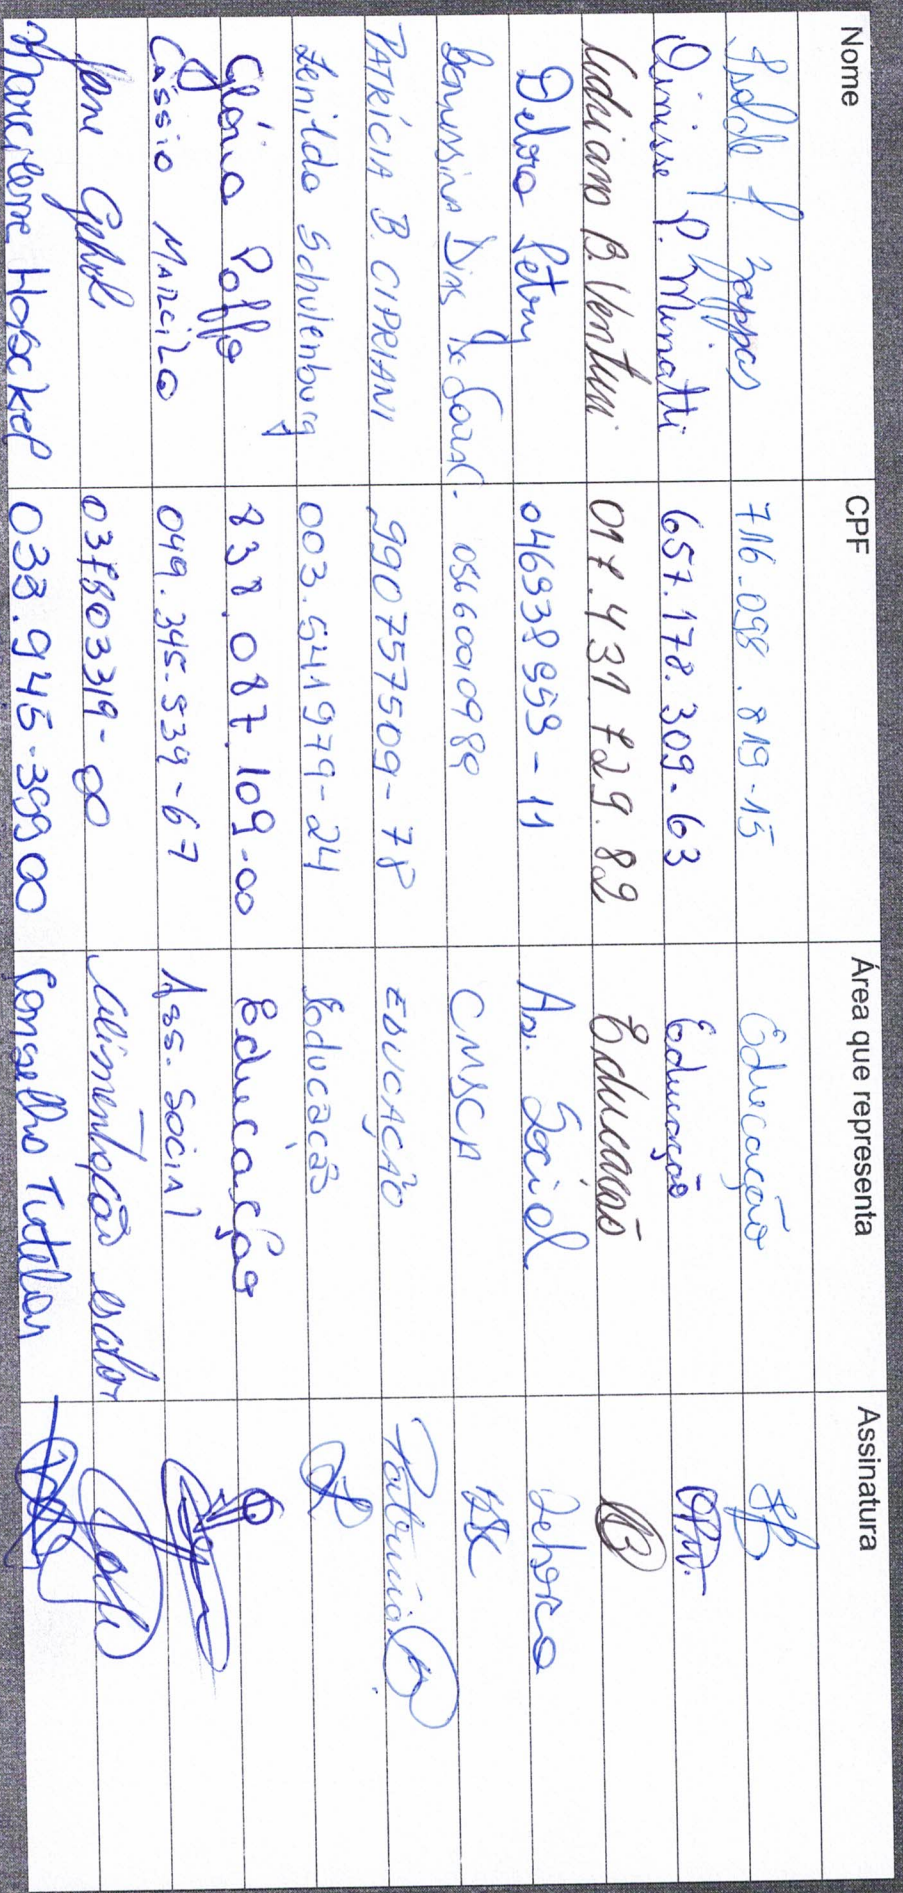 Nome CPF Área que representa Assinatura
Zappas 716.098.819-15 Educação
P. Minatti 657.178.309-63 Educação
B. Venturi 017.431 729.82 Educação
Debora Petry 046938959-11 As. Social Debora
Dias 05660010980 CMSCA
PATRÍCIA B. CIPRIANI 990757509-78 EDUCAÇÃO Patrícia
Zenilda Schulenburg 003.541979-24 Educação
Glória Poffo 838.087.109-00 Educação
Cássio Marcilo 049.345.939-67 Ass. Social
Jane 037803319-00 Alimentação escolar
Marcilene Hosckel 033.945-399 00 Conselho Tutelar